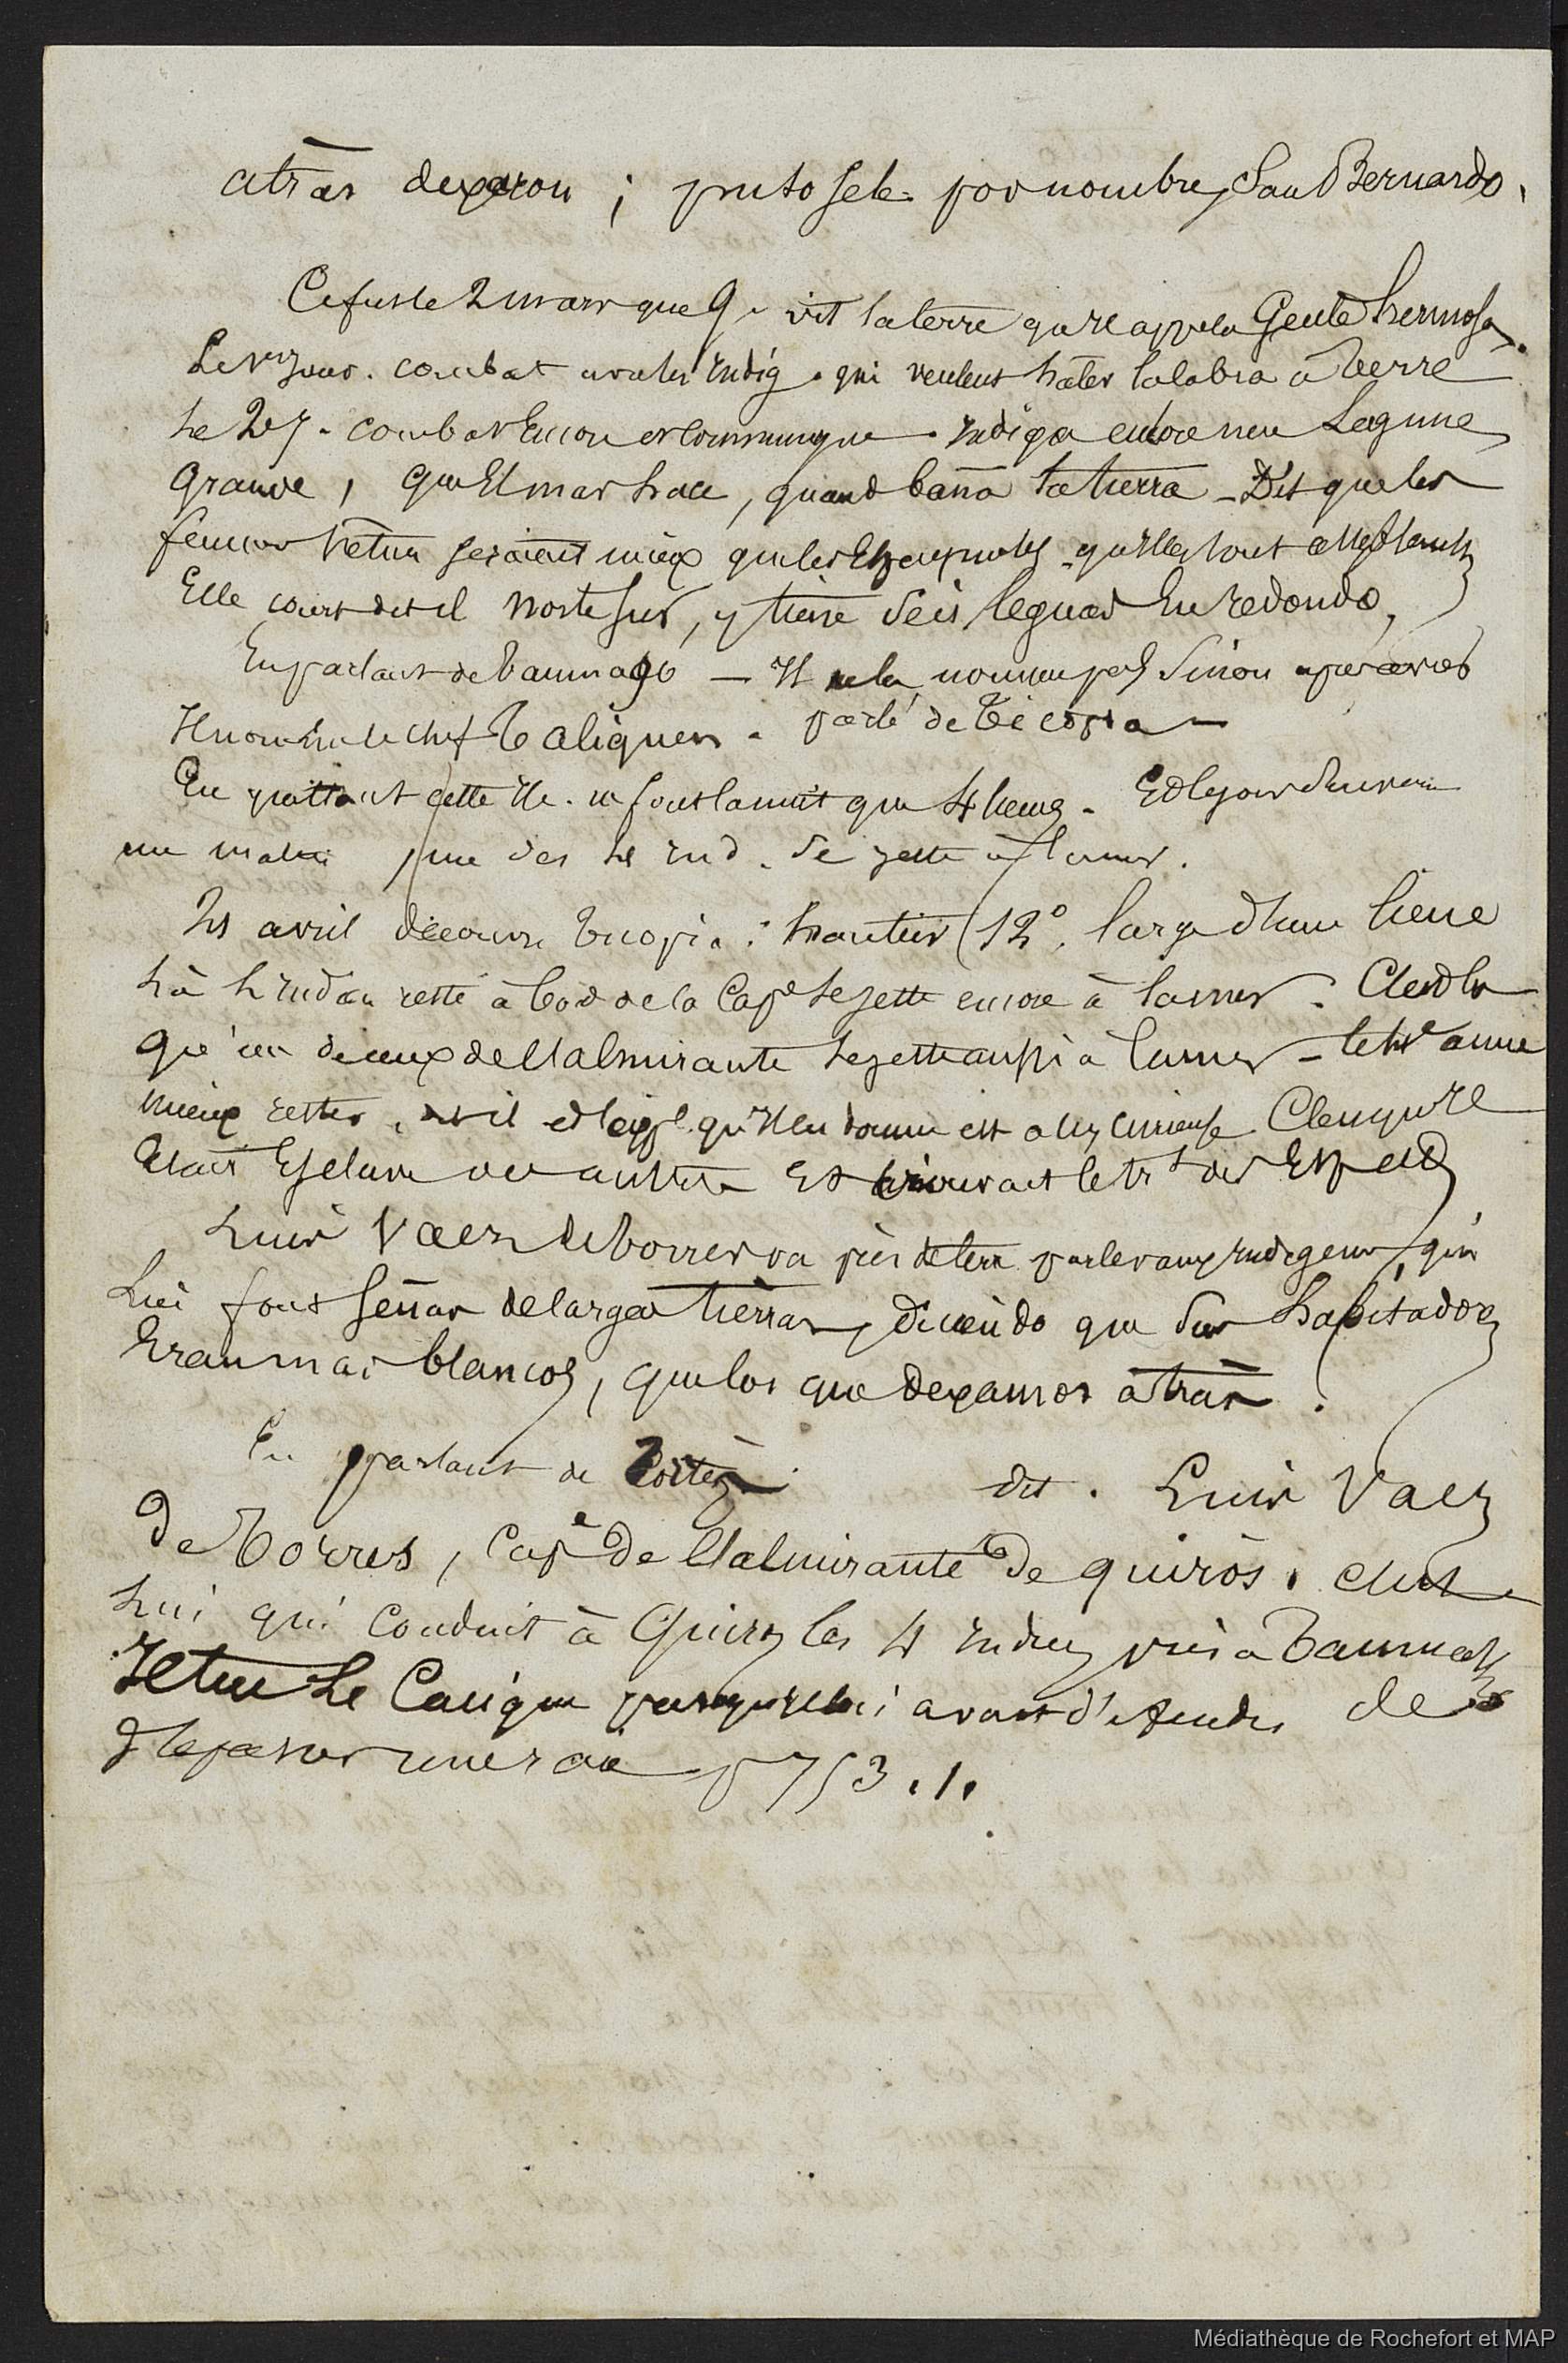 atràs dexaron ; pusosele por nombre, San Bernardo.
Ce fut le 2 mars que Q. vit la terre qu'il appela Gente hermosa.
Le 1er jour. combat avec les indig. qui veulent hâler la labra à terre
Le 2e j. combat encore et communique. indiga encore une Laguna
grande, que El mar hace, quand baña la tierra _ Dit que les
femmes vêtues seraient mieux que les Espagnoles _ qu'elles sont
Elle court dit il norte sur, y tiene seis leguas En redondo,
En parlant de Taumago — Il ne la nomme pas Sinon après avoir
Il nomme le chef Taliquen. parlé de Ticopia —
En quittant cette Ile. ne font la nuit que 4 lieues. Et le jour suivant
un matin, un des 4 ind. se jette à la mer.
21 avril découvre Tucopia : hauteur 12°, large d'une lieue
Là l'indien resté à bord de la Cape se jette encore à la mer.
qu'un de ceux de l'almirante se jette aussi à la mer _ le 4e aime
mieux rester, dit il et qu'il en donne est assez curieuse.
Etait Esclave des autres Et trouvait le trt des Esp
Luis Vaez de Torres va près de terre parler aux indigenes, qui
Lui font señas de largas tierras, diciendo que sus habitadores
Eran mas blancos, que los que dexamos atràs.
En parlant de dit. Luis Vaez
De Torres, Cape De l'almirante De quiròs. c'est
Lui qui conduit à Quiros les 4 indiens pris à Taumago
Le Cacique parce qu'il lui avait de
p 753 . 1.
Médiathèque de Rochefort et MAP